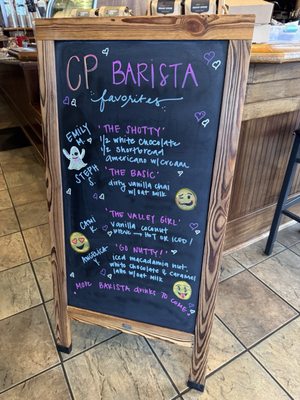 CP BARISTA
favorites
EMILY M
"THE SHOTTY"
1/2 white chocolate
1/2 shortbread
americano w/cream
STEPH S.
"THE BASIC"
dirty vanilla chai
w/ oat milk
CAWI K
"THE VALLEY GIRL"
vanilla coconut
HOT OR ICED
ANGELICA
"GO NUTTY!"
iced macadamia nut
white chocolate & caramel
latte w/ oat milk
MORE BARISTA DRINKS TO COME!